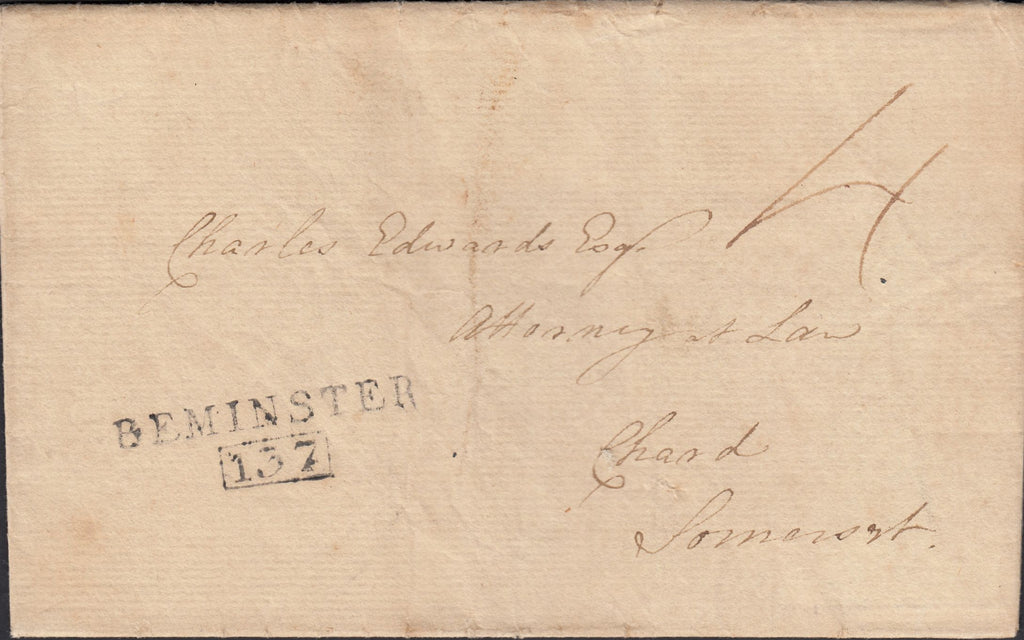 4
Charles Edwards Esqr.
Attorney at Law
BEMINSTER
137
Chard
Somerset.